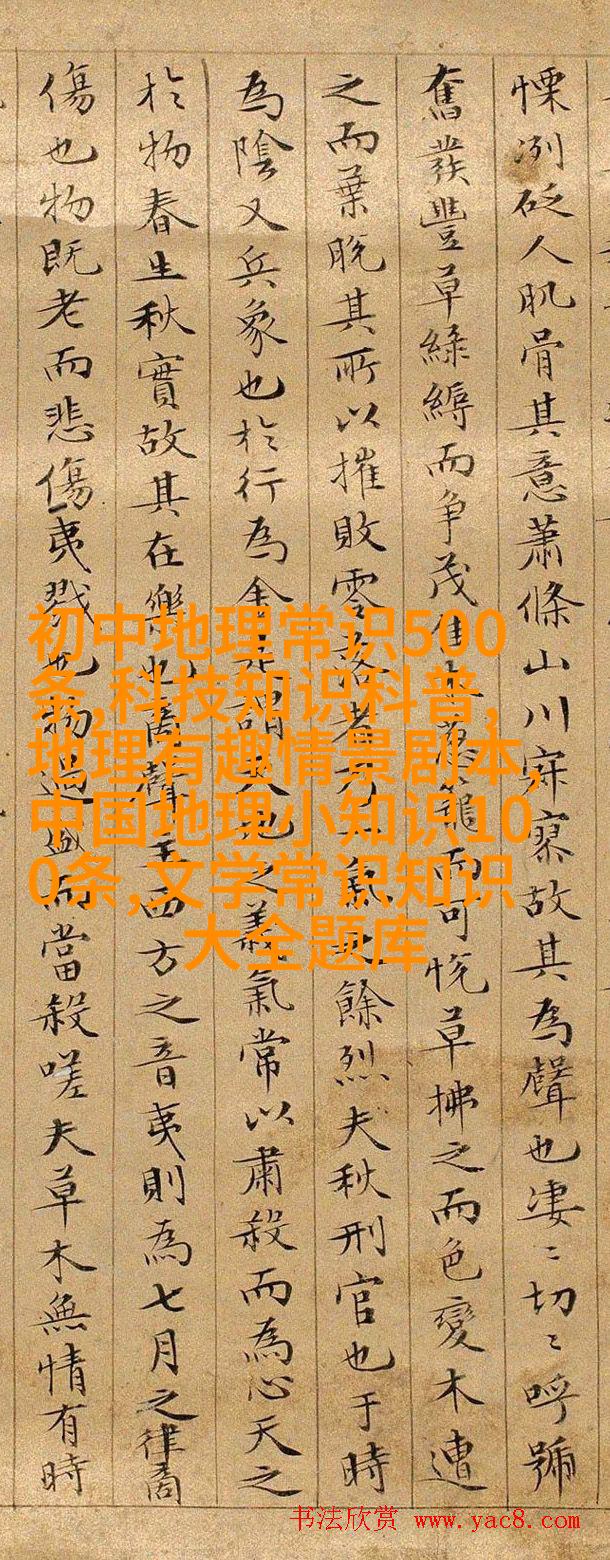 慄冽砭人肌骨其意蕭條山川寂寥故其為聲也凄〻切〻呼號
奮發豐草綠縟而争茂佳木蔥籠而可悅草拂之而色變木遭
之而葉脫其所以摧敗零落者乃一氣之餘烈夫秋刑官也于時
為陰又兵象也於行為金是謂天地之義氣常以肅殺而為心天之
於物春生秋實故其在樂也商聲主西方之音夷則為七月之律商
傷也物既老而悲傷夷戮也物過盛而當殺嗟夫草木無情有時
初中地理常识500
条,科技知识科普,
地理有趣情景剧本,
中国地理小知识10
0条,文学常识知识
大全题库
书法欣赏 www.yac8.com